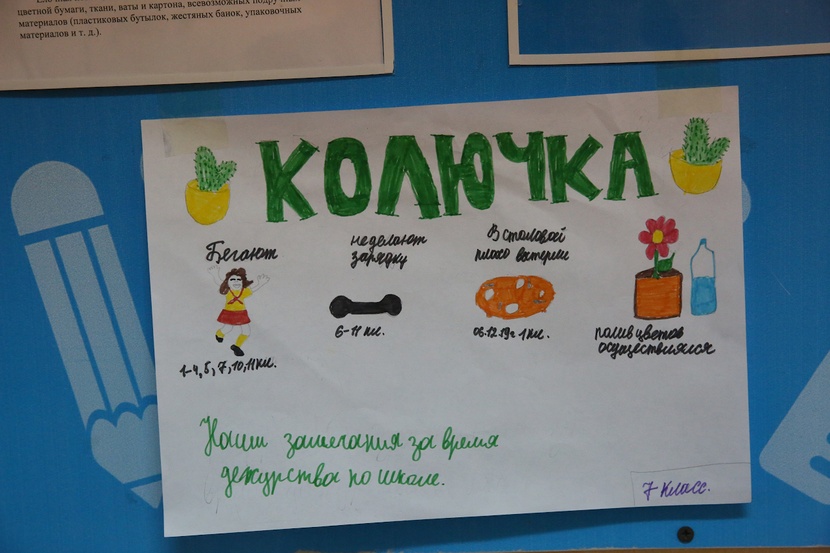 цветной бумаги, ткани, ваты и картона, всевозможных подручных
материалов (пластиковых бутылок, жестяных банок, упаковочных
материалов и т. д.).
КОЛЮЧКА
Бегают
1-4, 5, 7, 10, 11 кл.
не делают
зарядку
6-11 кл.
В столовой
плохо вытерли
06.12.19г 1 кл.
полив цветов
осуществлялся
Наши замечания за время
дежурства по школе.
7 класс.